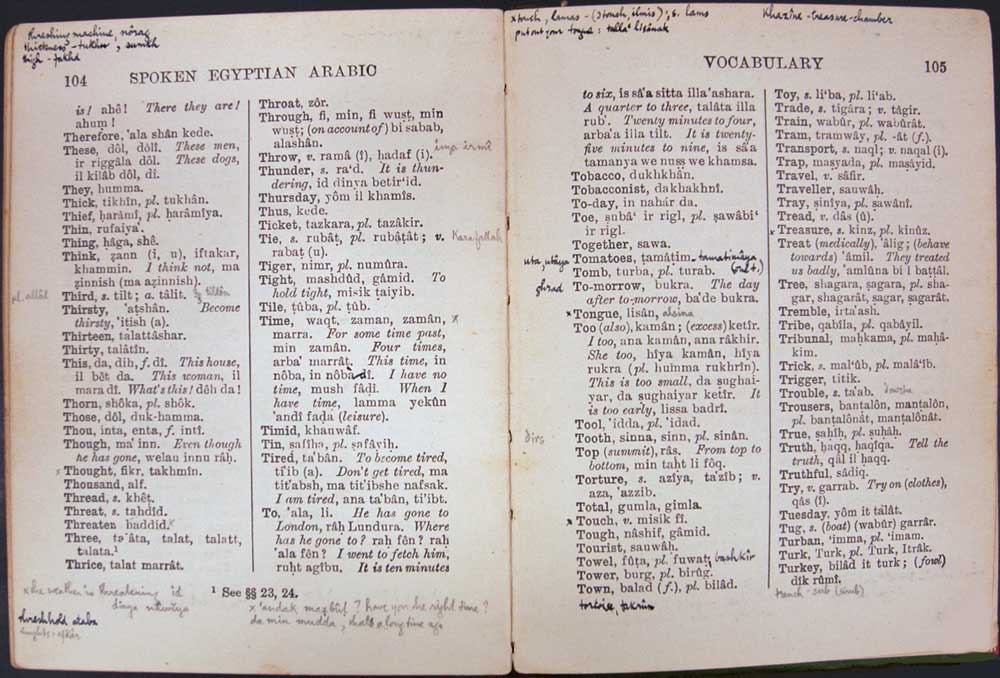 threshing machine, nôrag
thickness - tukhn, sumk
thigh - fakhd
104 SPOKEN EGYPTIAN ARABIC
is! ahê! There they are!
ahum!
Therefore, 'ala shân kede.
These, dôl, dôlî. These men,
ir riggâla dôl. These dogs,
il kilâb dôl, dî.
They, humma.
Thick, tikhîn, pl. tukhân.
Thief, ḥarâmî, pl. ḥarâmîya.
Thin, rufaiya'.
Thing, ḥâga, shê.
Think, ẓann (i, u), iftakar,
khammin. I think not, ma
ẓinnish (ma aẓinnish).
Third, s. tilt; a. tâlit.
Thirsty, 'aṭshân. Become
thirsty, 'itish (a).
Thirteen, talattâshar.
Thirty, talâtîn.
This, da, dih, f. dî. This house,
il bêt da. This woman, il
mara dî. What's this! dêh da!
Thorn, shôka, pl. shôk.
Those, dôl, duk-hamma.
Thou, inta, enta, f. intî.
Though, ma' inn. Even though
he has gone, welau innu râḥ.
Thought, fikr, takhmîn.
Thousand, alf.
Thread, s. khêṭ.
Threat, s. tahdîd.
Threaten haddid.
Three, ta'âta, talat, talatt,
talata.¹
Thrice, talat marrât.
x the weather is threatening id
dinya
threshhold ataba
Throat, zôr.
Through, fi, min, fi wusṭ, min
wusṭ; (on account of) bi sabab,
alashân.
Throw, v. ramâ (î), ḥadaf (i).
Thunder, s. ra'd. It is thun-
dering, id dinya betir'id.
Thursday, yôm il khamîs.
Thus, kede.
Ticket, tazkara, pl. tazâkir.
Tie, s. rubâṭ, pl. rubâṭât; v.
rabaṭ (u).
Tiger, nimr, pl. numûra.
Tight, mashdûd, gâmid. To
hold tight, misik ṭaiyib.
Tile, ṭûba, pl. ṭûb.
Time, waqt, zaman, zamân, x
marra. For some time past,
min zamân. Four times,
arba' marrât. This time, in
nôba, in nôba dî. I have no
time, mush fâḍî. When I
have time, lamma yekûn
'andî faḍa (leisure).
Timid, khauwâf.
Tin, safîḥa, pl. ṣafâyiḥ.
Tired, ta'bân. To become tired,
ti'ib (a). Don't get tired, ma
tit'absh, ma tit'ibshe nafsak.
I am tired, ana ta'bân, ti'ibt.
To, 'ala, li. He has gone to
London, râḥ Lundura. Where
has he gone to? raḥ fên? raḥ
'ala fên? I went to fetch him,
ruḥt agîbu. It is ten minutes
¹ See §§ 23, 24.
x 'andak mazbût? have you the right time?
da min mudda, that's a long time ago
x touch, lamas - (3 touch, ilmis); s. lams
put out your tongue: talla' lisânak
Khazîne - treasure-chamber
VOCABULARY 105
to six, is sâ'a sitta illa 'ashara.
A quarter to three, talâta illa
rub'. Twenty minutes to four,
arba'a illa tilt. It is twenty-
five minutes to nine, is sâ'a
tamanya we nuṣṣ we khamsa.
Tobacco, dukhkhân.
Tobacconist, dakhakhnî.
To-day, in nahâr da.
Toe, ṣubâ' ir rigl, pl. ṣawâbi'
ir rigl.
Together, sawa.
Tomatoes, ṭamâṭim.
Tomb, turba, pl. turab.
To-morrow, bukra. The day
after to-morrow, ba'de bukra.
x Tongue, lisân, alsina
Too (also), kamân; (excess) ketîr.
I too, ana kamân, ana râkhir.
She too, hîya kamân, hîya
rukra (pl. humma rukhrîn).
This is too small, da ṣughai-
yar, da ṣughaiyar ketîr. It
is too early, lissa badrî.
Tool, 'idda, pl. 'idad.
dirs
Tooth, sinna, sinn, pl. sinân.
Top (summit), râs. From top to
bottom, min taḥt li fôq.
Torture, s. azîya, ta'zîb; v.
aza, 'azzib.
Total, gumla, gimla.
x Touch, v. misik fi.
Tough, nâshif, gâmid.
Tourist, sauwâḥ.
Towel, fûṭa, pl. fuwaṭ, bashkîr
Tower, burg, pl. birûg.
Town, balad (f.), pl. bilâd.
Toy, s. li'ba, pl. li'ab.
Trade, s. tigâra; v. tâgir.
Train, wabûr, pl. wabûrât.
Tram, tramwây, pl. -ât (f.).
Transport, s. naql; v. naqal (i).
Trap, maṣyada, pl. maṣâyid.
Travel, v. sâfir.
Traveller, sauwâḥ.
Tray, ṣinîya, pl. ṣawânî.
Tread, v. dâs (û).
x Treasure, s. kinz, pl. kinûz.
Treat (medically), 'âlig; (behave
towards) 'âmil. They treated
us badly, 'amlûna bi'l baṭṭâl.
Tree, shagara, ṣagara, pl. sha-
gar, shagarât, ṣagar, ṣagarât.
Tremble, irta'ash.
Tribe, qabîla, pl. qabâyil.
Tribunal, maḥkama, pl. maḥâ-
kim.
Trick, s. mal'ûb, pl. malâ'îb.
Trigger, titik.
Trouble, s. ta'ab.
Trousers, banṭalôn, manṭalôn,
pl. banṭalônât, manṭalônât.
True, ṣaḥîḥ, pl. ṣuḥâḥ.
Truth, ḥaqq, ḥaqîqa. Tell the
truth, qâl il ḥaqq.
Truthful, ṣâdiq.
Try, v. garrab. Try on (clothes),
qâs (î).
Tuesday, yôm it talât.
Tug, s. (boat) (wabûr) garrâr.
Turban, 'imma, pl. 'imam.
Turk, Turk, pl. Turk, Itrâk.
Turkey, bilâd it turk; (fowl)
dîk rûmî.